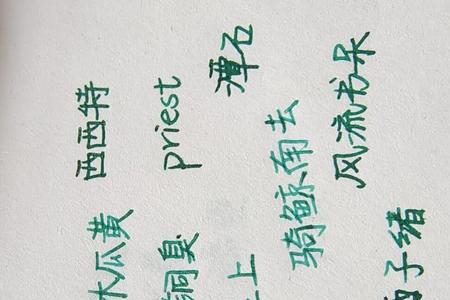 木瓜黄 西西特
铜臭 priest
上 潭石
骑鲸南去
风流书呆
子绪